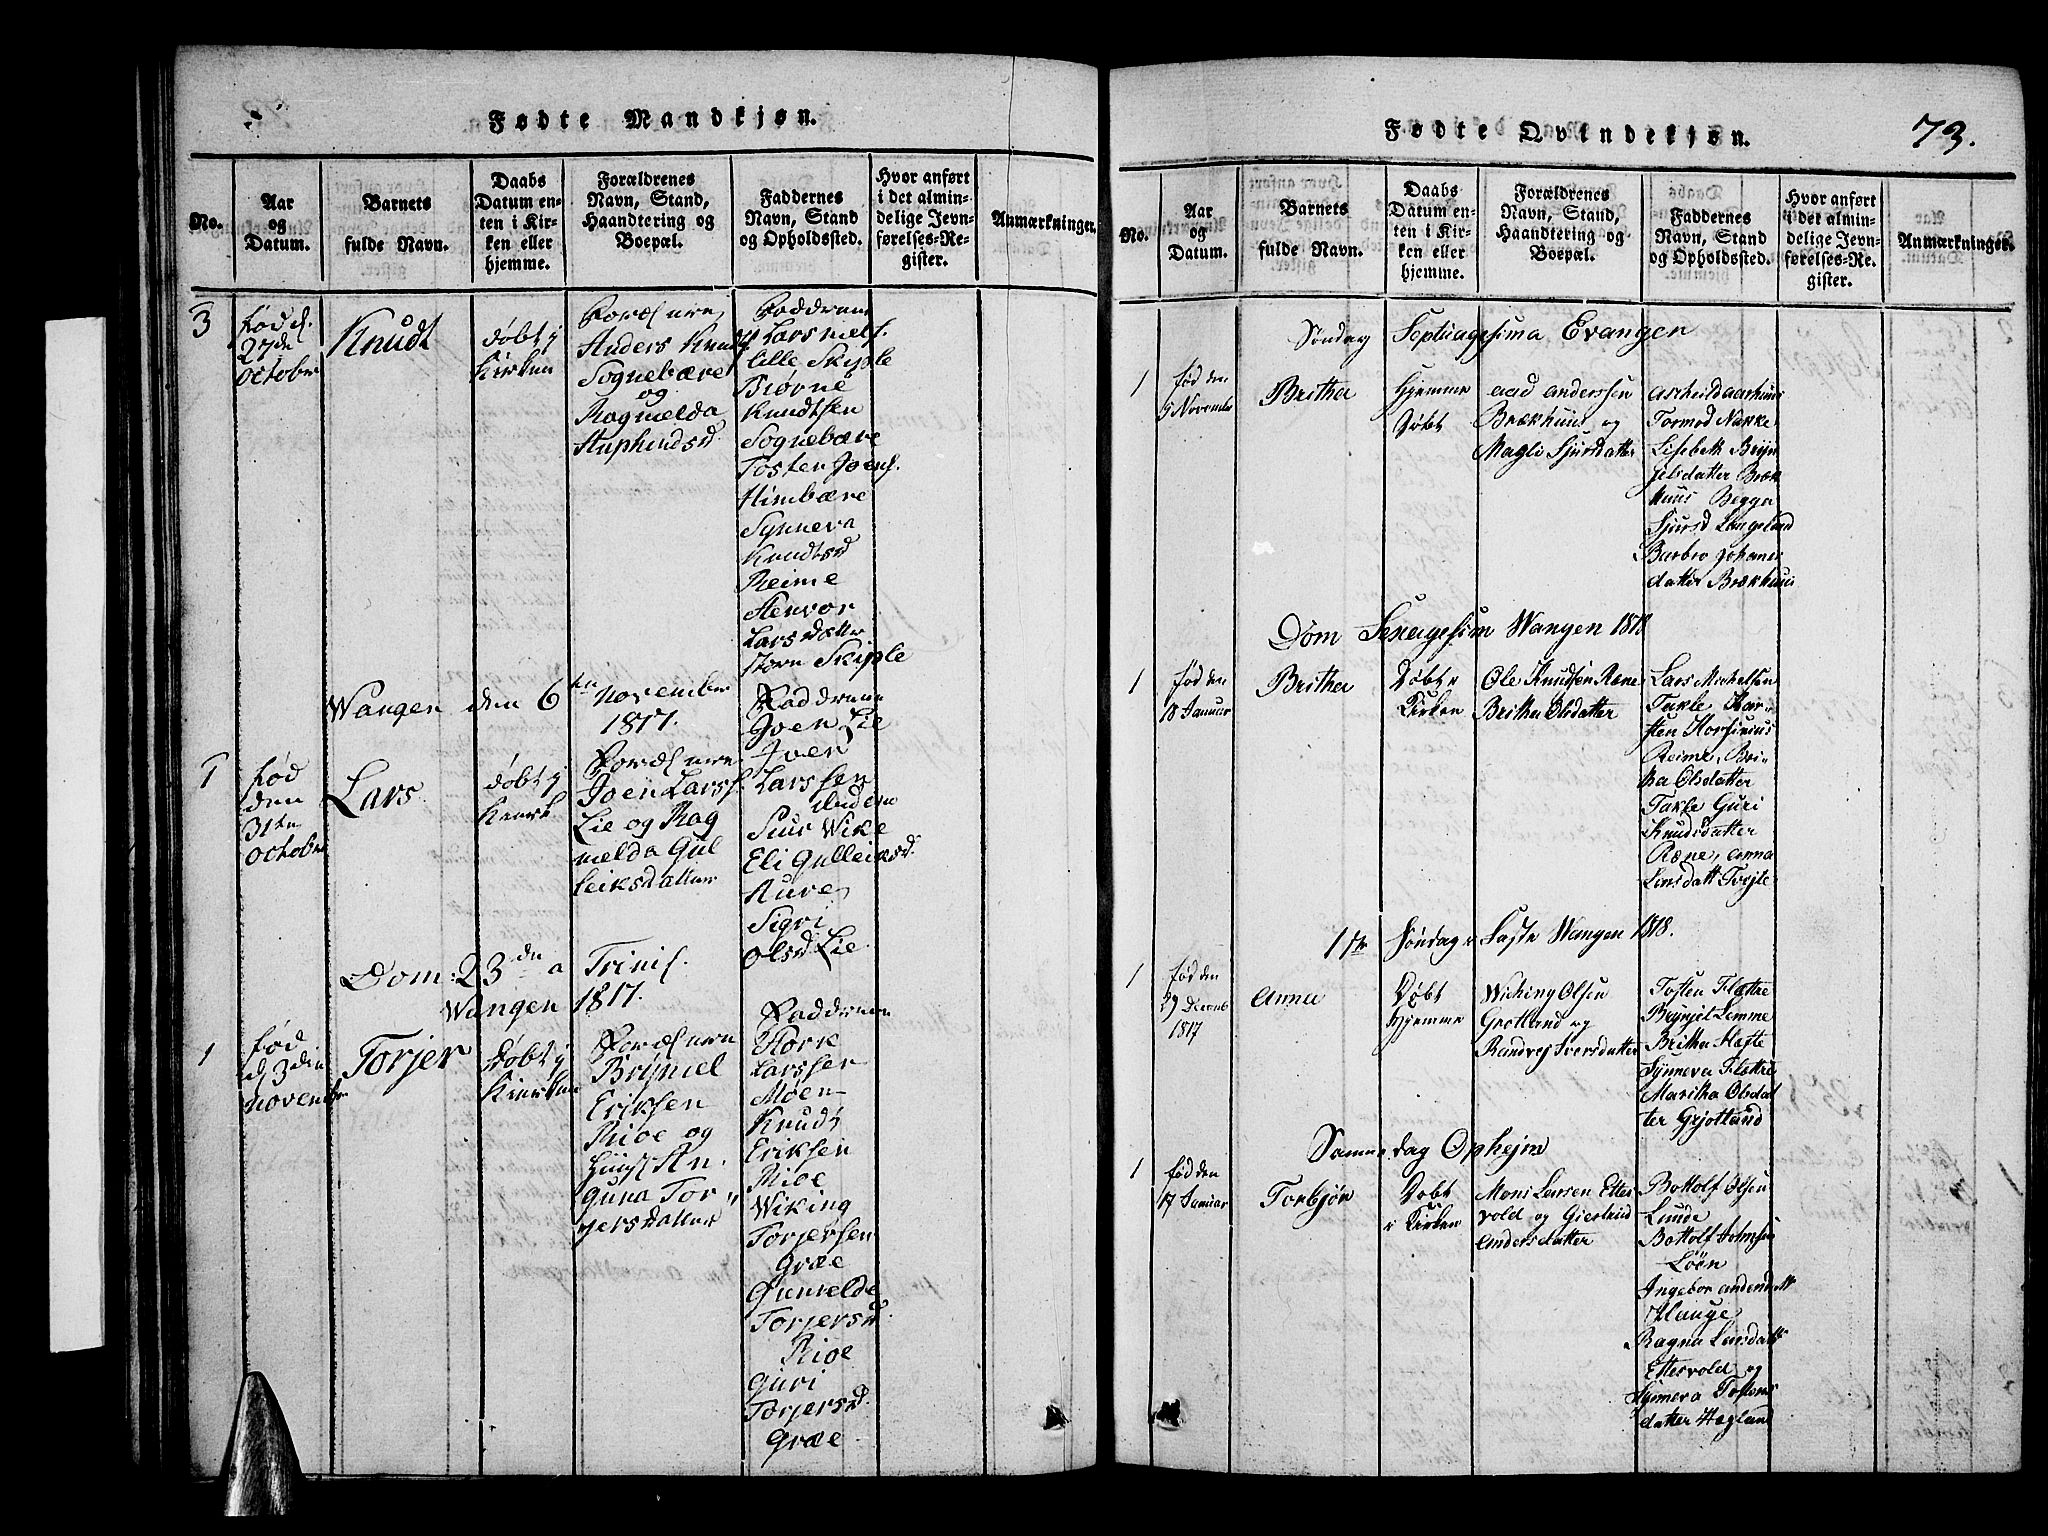 Fødte Mandkjøn.
No.
Aar
og
Datum.
Barnets
fulde Navn.
Daabs
Datum en-
ten i Kir-
ken eller
hjemme.
Forældrenes
Navn, Stand,
Haandtering og
Boepæl.
Faddernes
Navn, Stand
og Opholdssted.
Hvor anført
i det almin-
delige Jevn-
førelses-Re-
gister.
Anmærkninger.
3
fød d.
27de
octobr
Knudt
døbt i
Kirken
Anders Knudts.
Sognebære
og
Ragnelda
Lars
lille Skiple
Biørne
Knudtsen
Sognebære
Tosten Joens.
Himbære
Synneva
Knudtsd
Reime
Stenvor
Larsdatter
store Skiple
Wangen den 6te November
1817.
1
fød
den
31te
octobr
Lars
døbt i
Joen Lars.
Lie og Rag
nelda Gul
leiksdatter
Joen Lie
Iver
Larssen
Siur Wike
Eli Gulleiksd.
Aure
Sigri
Olsd Lie
Dom: 23de a Trinit.
Wangen 1817.
1
fød
november
Torjer
døbt i
Kirken
Brynjel
Eriksen
Rioe og
Guna Tor
jersdatter
Larssen
Møen
Knud
Eriksen
Rioe
Wiking
Torjersen
Græe
Gunvelde
Torjersd.
Rioe
Guri
Torjersd.
Græe
Fødte Qvindekjøn.
73.
No.
Aar
og
Datum.
Barnets
fulde Navn.
Daabs
Datum en-
ten i Kir-
ken eller
hjemme.
Forældrenes
Navn, Stand,
Haandtering og
Boepæl.
Faddernes
Navn, Stand
og Opholdssted.
Hvor anført
i det almin-
delige Jevn-
førelses-Re-
gister.
Anmærkninger.
Søndag Septuagesima Evanger
1
fød den
9 Novembr
Britha
Hjemme
Døbt
aad anderssen
Brækhuus og
Magli Sjursdatter
Tormod Nække
Lisebeth Bryn
jelsdatter Bræk
huus Begga
Sjursd Langeland
Barbro Johanes
datter Brækhuus
Dom Sexagesim Wangen 1818
1
fød den
18 Januar
Britha
Døbt i
Kirken
Ole Knudsen Rene
Britha Olsdatter
Lars Michelsen
Takle Kar-
sten
Reime, Bri-
tha Olsdatter
Takle Guri
Knudsdatter
Ræne, anna
Larsdatt
1ste Søndag i Faste Wangen 1818.
1
fød den
29 Decemb
1817
Anna
Døbt
Hjemme
Wiching Olsen
Grotland og
Randvej Iversdatter
Tosten Flætre
Brynjel Lemme
Britha
Synneva Flætre
Maritha Olsdat
ter Grjotland
Samme dag Ophejm
1
fød den
17 Januar
Torbjør
Døbt
i Kirken
Mons Larsen Ettes
vold og Giertrud
Andersdatter
Bottolf Olsen
Lunde
Bottolf Johnsen
Løen
Ingebor andersdatt
Hauge
Ragna Larsdatt
Ettesvold og
Synneva Tostens
datter Hægland